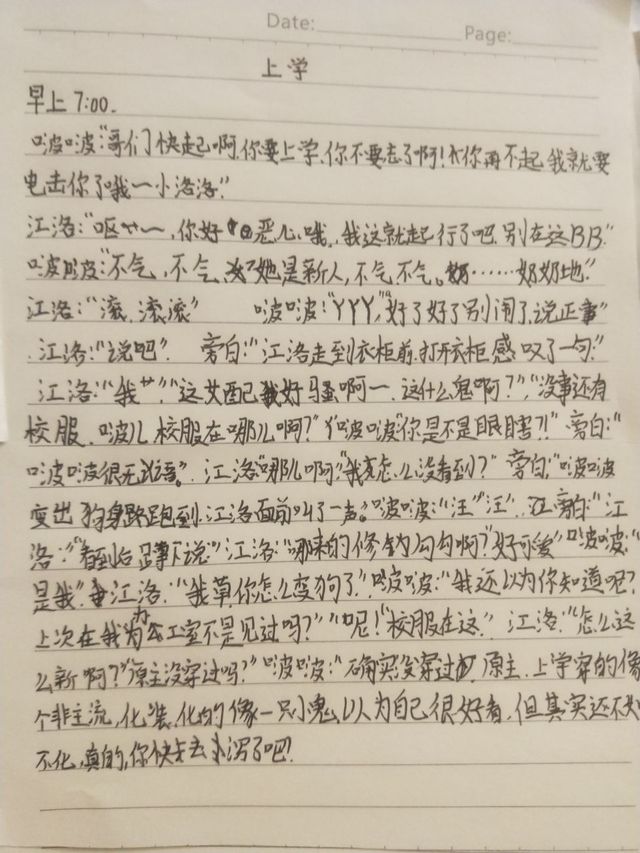 Date: Page:
上学
早上7:00.
啵啵:"哥们快起啊,你要上学,你不要去了啊!你再不起我就要
电击你了哦一小洛洛."
江洛:"呕艹一,你好恶心哦,我这就起行了吧.别在这BB."
啵啵:"不气,不气,她是新人,不气不气。奶……奶奶地."
江洛:"滚,滚滚" 啵啵:"YYY,好了好了别闹了,说正事"
江洛:"说吧". 旁白:"江洛走到衣柜前.打开衣柜感叹了一句."
江洛:"我艹","这女配己我好骚啊一.这什么鬼啊?","没事还有
校服.啵儿校服在哪儿啊?"啵啵"你是不是眼瞎?!"旁白:"
啵啵很无语。江洛"哪儿啊","我怎么没看到?"旁白:"啵啵
变出狗身跑到江洛面前叫了一声。啵啵:"汪""汪".旁白:"江
洛:"看到后蹲下说:"江洛:"哪来的修钩勾勾啊?好可爱"啵啵:"
是我".江洛:"我草,你怎么变狗了."啵啵:"我还以为你知道呢?
上次在我办公工室不是见过吗?""呢!"校服在这." 江洛:"怎么这
么新啊?"原主没穿过吗?"啵啵:"确实没穿过,原主.上学穿的像
个非主流,化装,化的像一只小鬼,以为自己很好看,但其实还不如
不化,真的,你快去泻了吧!